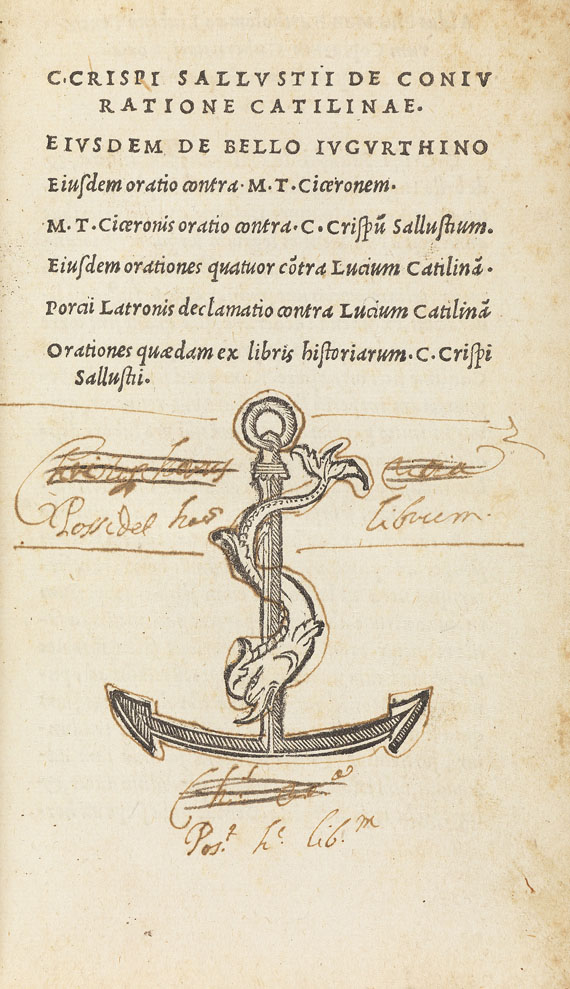 C.CRISPI SALLVSTII DE CONIV
RATIONE CATILINAE.
EIVSDEM DE BELLO IVGVRTHINO
Eiuſdem oratio contra·M.T.Ciceronem.
M.T.Ciceronis oratio contra·C.Criſpũ Salluſtium.
Eiuſdem orationes quatuor cõtra Lucium Catilinã.
Porcii Latronis declamatio contra Lucium Catilinã
Orationes quædam ex libris hiſtoriarum.C.Criſpi
Salluſtii.
Possidet hos librum.
Pos.t h.c lib.m